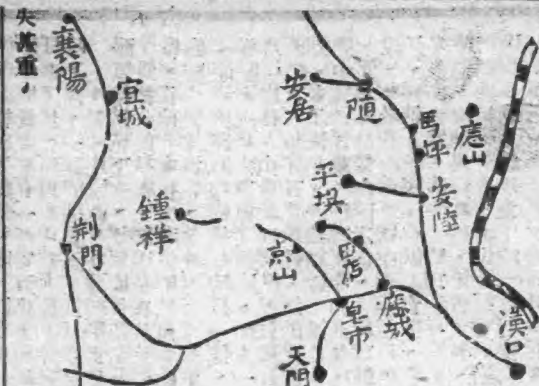 失甚重，
襄陽
宜城
荆門
鍾祥
京山
安居
隨
馬坪
應山
平垻
安陸
田店
應城
皂市
天門
漢口